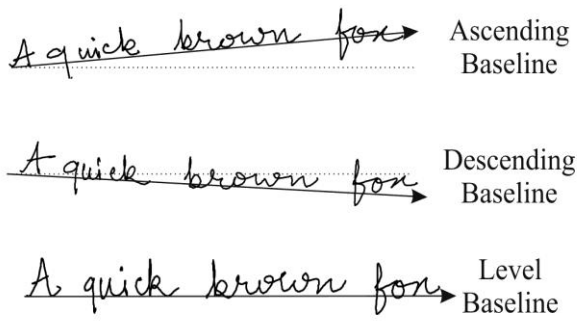 A quick brown fox Ascending
Baseline
A quick brown fox Descending
Baseline
A quick brown fox Level
Baseline